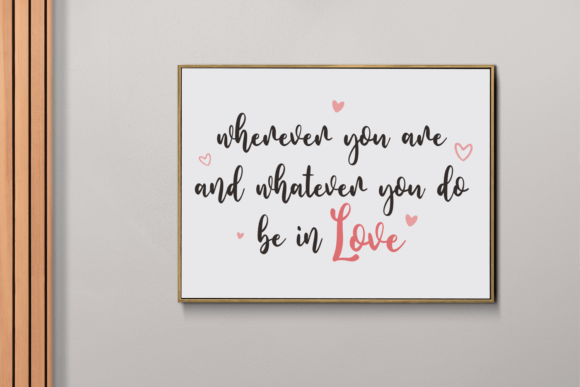 wherever you are
and whatever you do
be in Love